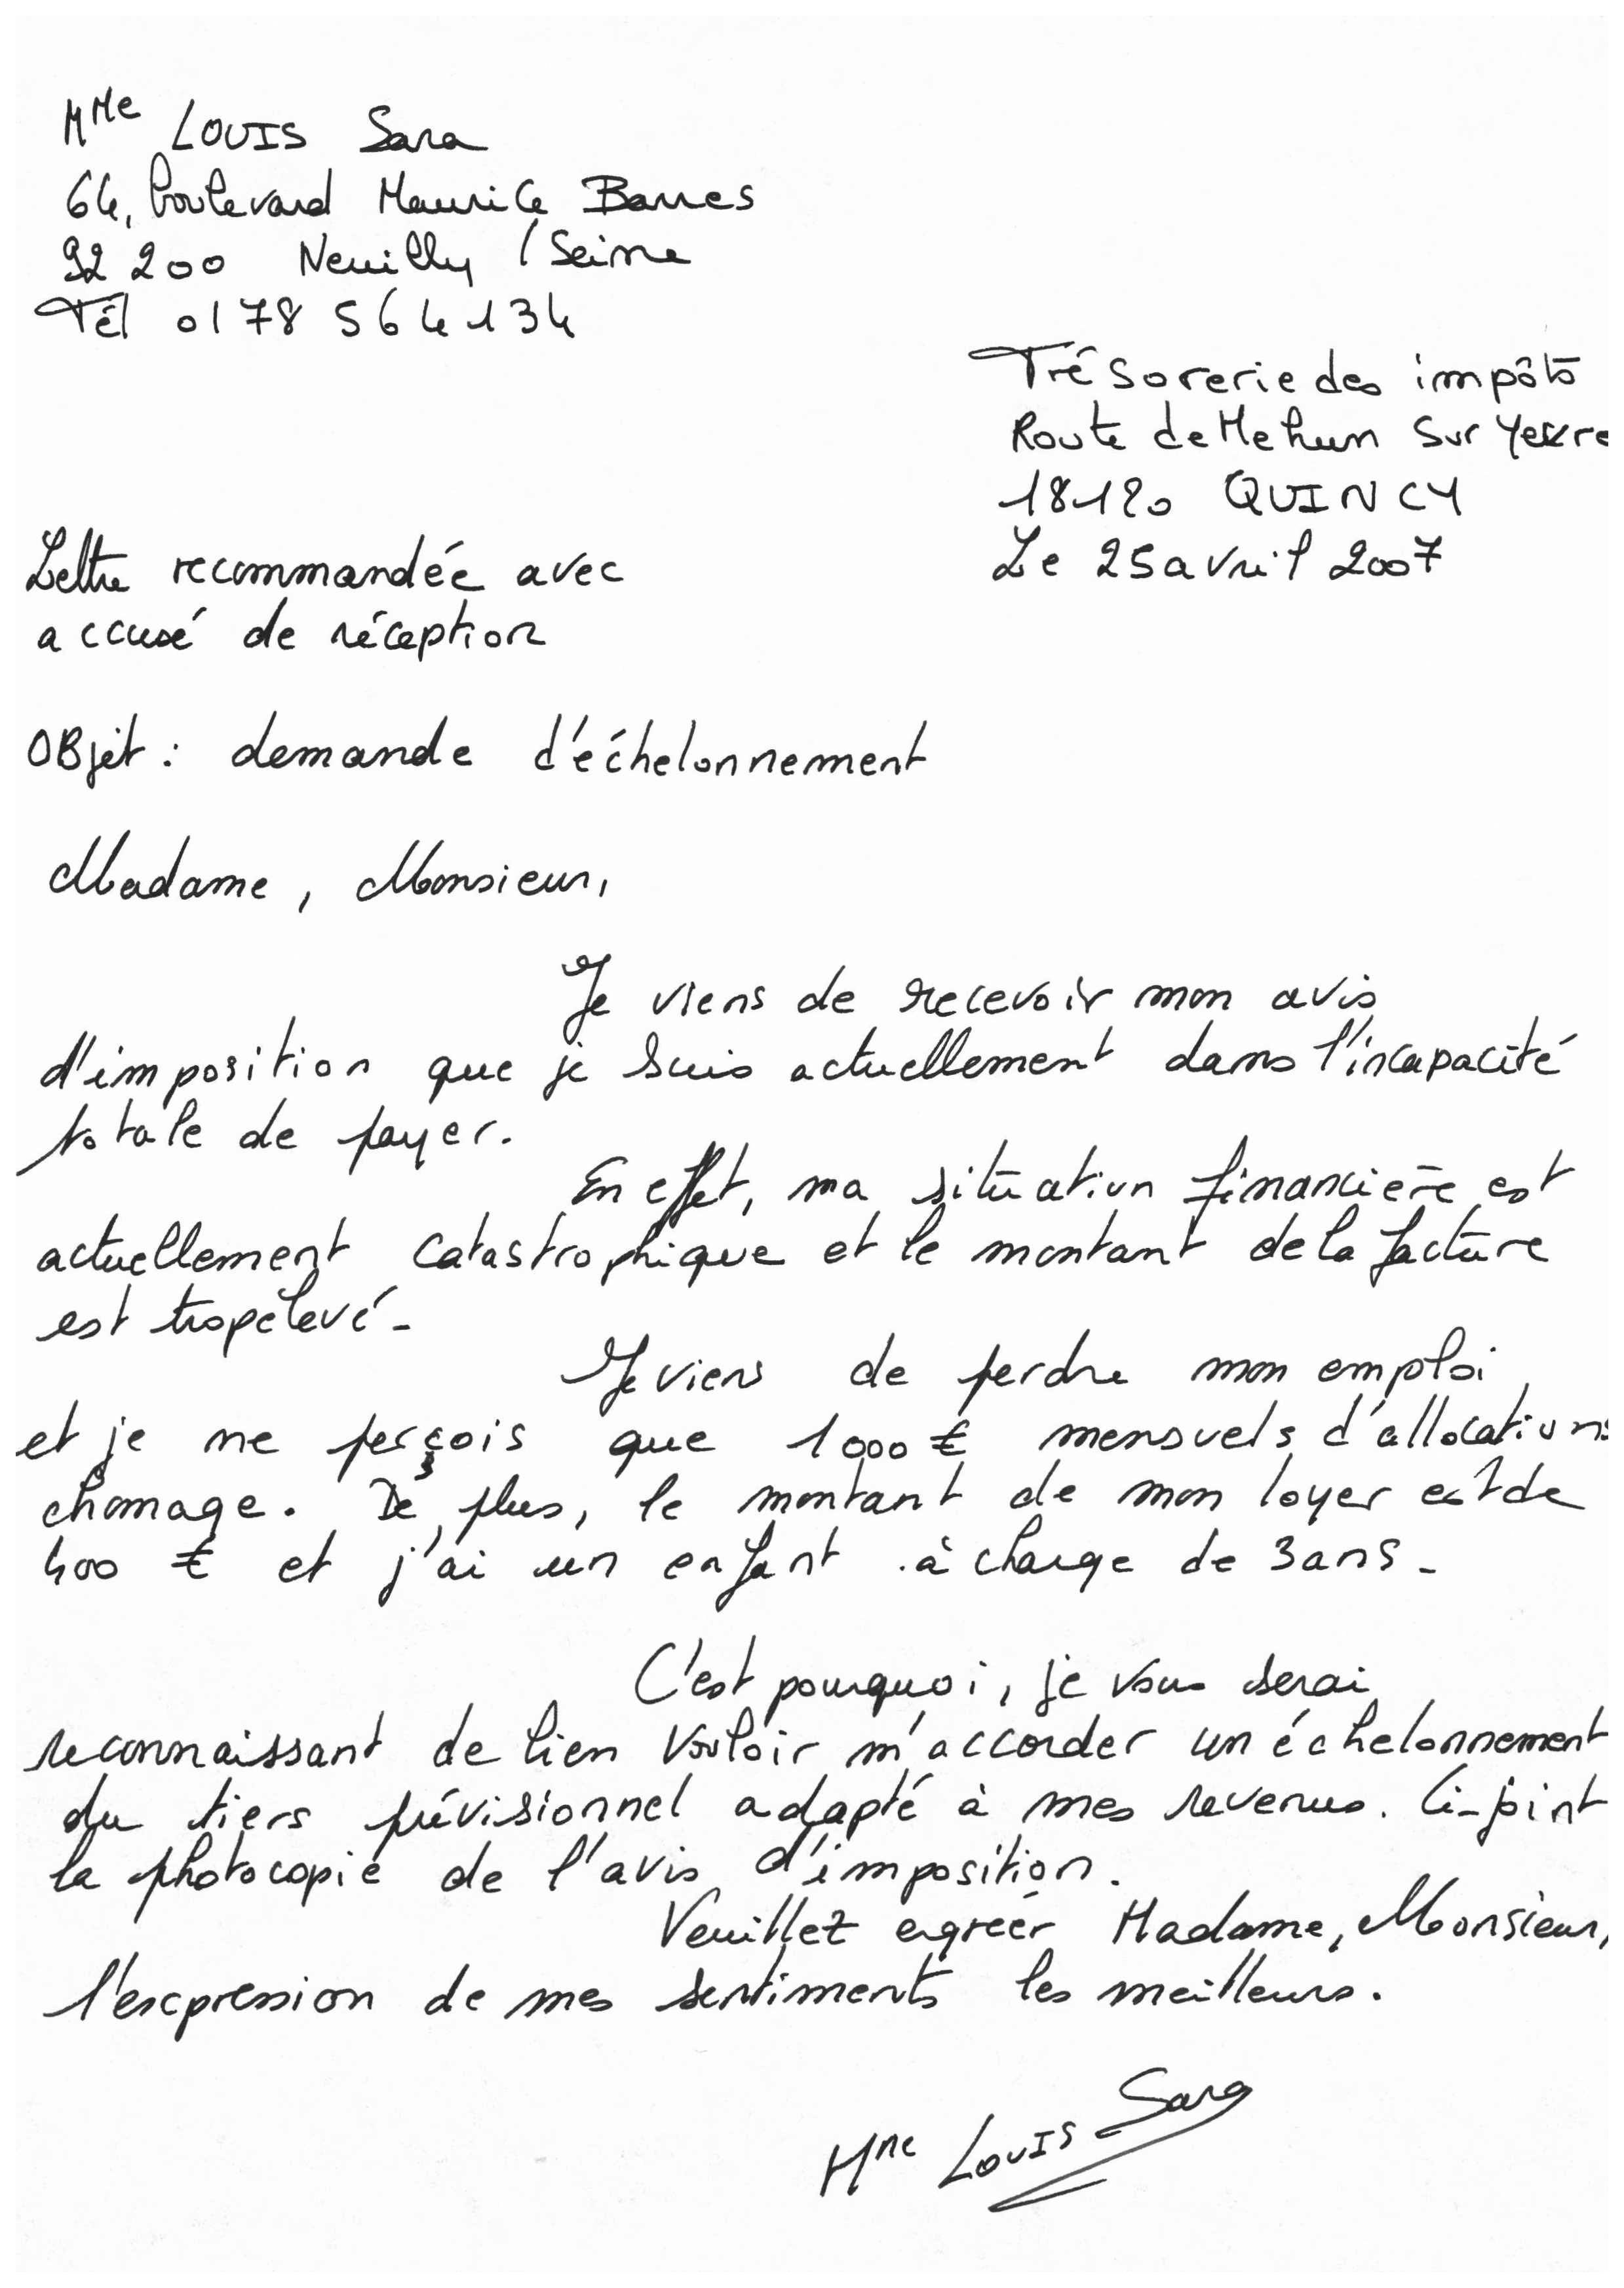 Mme LOUIS Sara
64, boulevard Maurice Barres
92 200 Neuilly / Seine
Tél 01 78 56 41 34
Trésorerie des impôts
Route de Mehun Sur Yevre
18120 QUINCY
Le 25 avril 2007
Lettre recommandée avec
accusé de réception
OBjet : demande d'échelonnement
Madame, Monsieur,
Je viens de recevoir mon avis
d'imposition que je suis actuellement dans l'incapacité
totale de payer.
En effet, ma situation financière est
actuellement catastrophique et le montant de la facture
est trop élevé.
Je viens de perdre mon emploi
et je ne perçois que 1000 € mensuels d'allocations
chomage. De plus, le montant de mon loyer est de
400 € et j'ai un enfant à charge de 3 ans.
C'est pourquoi, je vous serai
reconnaissant de bien vouloir m'accorder un échelonnement
du tiers prévisionnel adapté à mes revenus. Ci-joint
la photocopie de l'avis d'imposition.
Veuillez agréer Madame, Monsieur,
l'expression de mes sentiments les meilleurs.
Mme LOUIS Sara